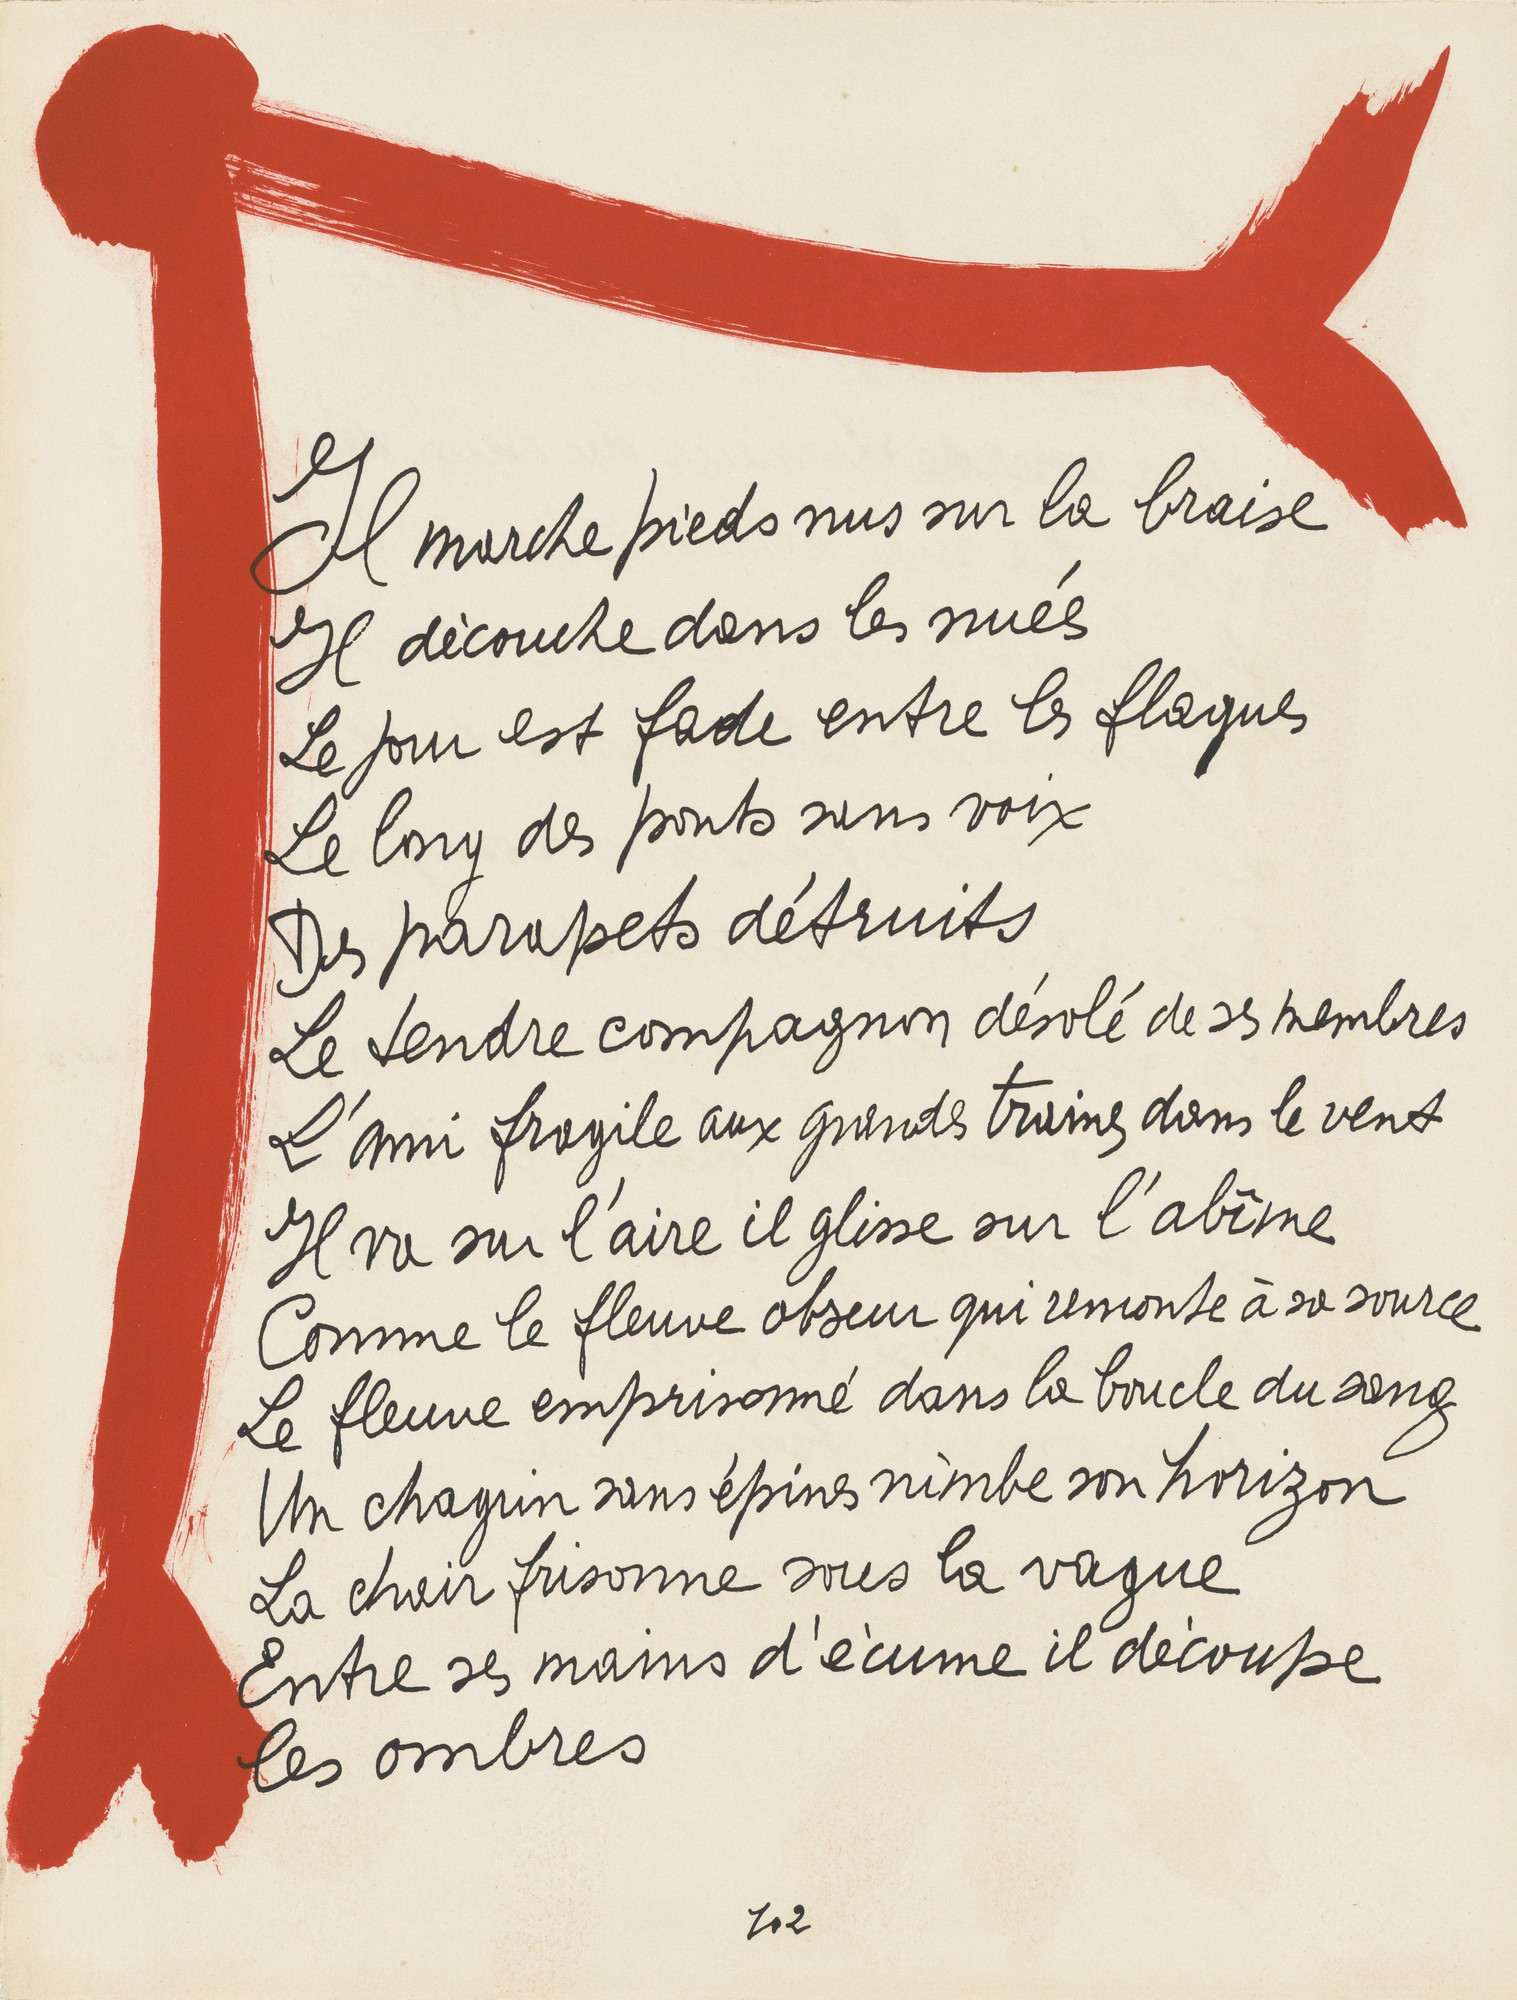 Il marche pieds nus sur la braise
Il découche dans les nués
Le jour est fade entre les flaques
Le long des ponts sans voix
Des parapets détruits
Le tendre compagnon désolé de ses membres
L'ami fragile aux grands trains dans le vent
Il va sur l'aire il glisse sur l'abîme
Comme le fleuve obscur qui remonte à sa source
Le fleuve emprisonné dans la boucle du sang
Un chagrin sans épines nimbe son horizon
La chair frisonne sous la vague
Entre ses mains d'écume il découpe
les ombres
102